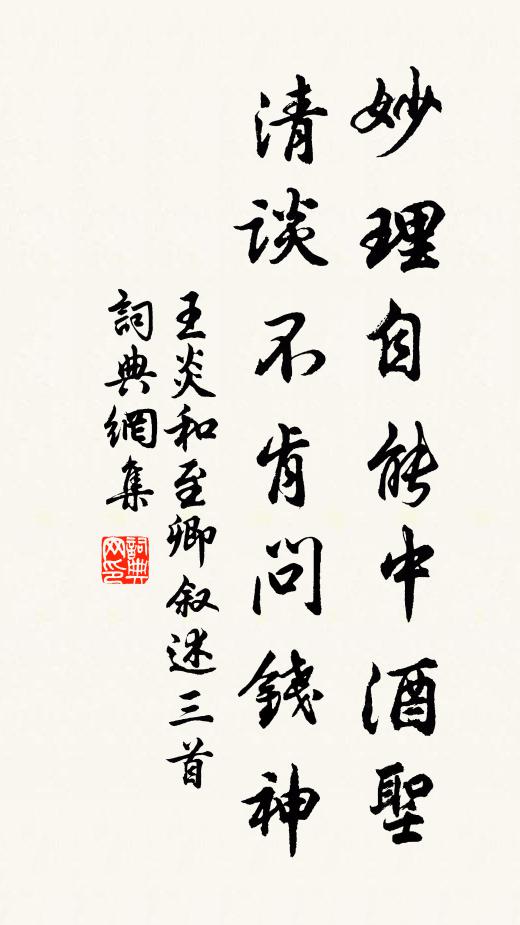 妙理自能中酒聖
清談不肯問錢神
王炎和至卿叙述三首
詞典網集
詞典網印